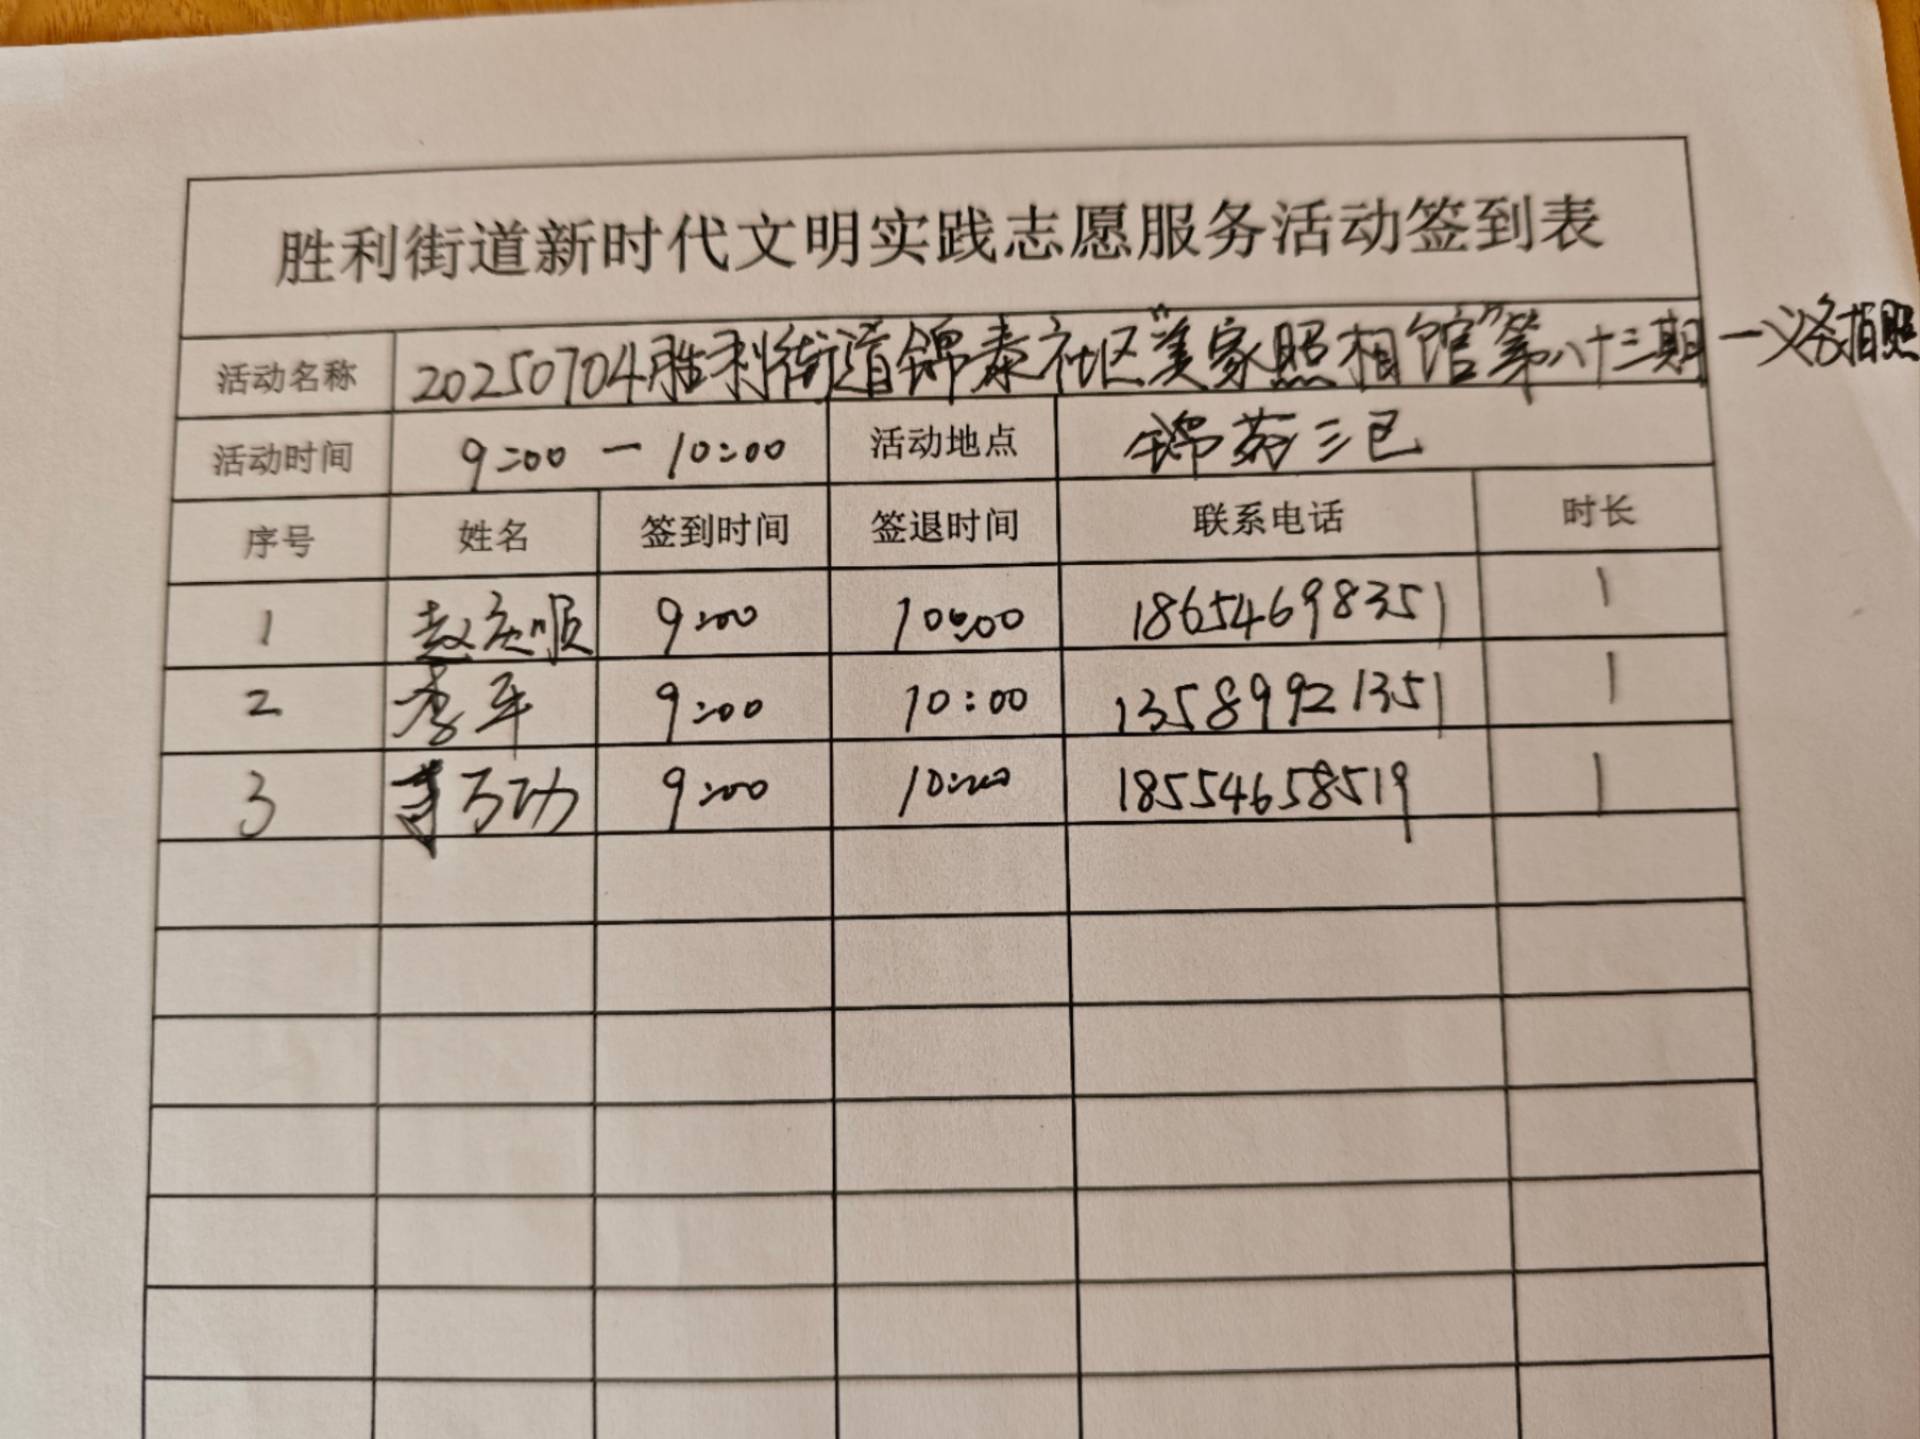 胜利街道新时代文明实践志愿服务活动签到表
活动名称 20250704胜利街道锦泰社区"美家照相馆"第八十三期一义务拍照
活动时间 9:00 — 10:00 活动地点 锦苑三区
序号 姓名 签到时间 签退时间 联系电话 时长
1 赵庆顺 9:00 10:00 18654698351 1
2 李军 9:00 10:00 13589921351 1
3 9:00 10:00 18554658519 1